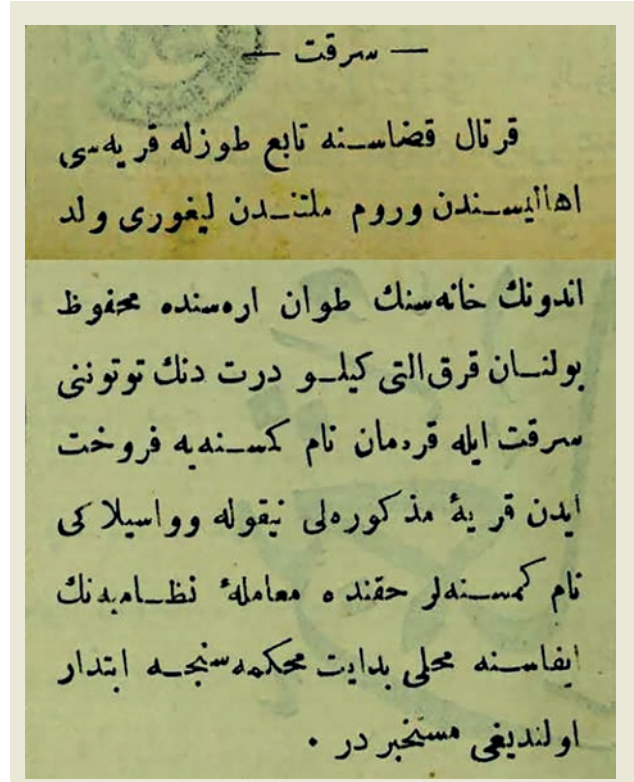 — سرقت —
قرتال قضاسنه تابع طوزله قریه‌سی
اهالیسندن وروم ملتندن لیغوری ولد
اندونك خانه‌سنك طوان اره‌سنده محفوظ
بولنان قرق التی کیلو درت دنك توتوننی
سرقت ایله قره‌مان نام کمسنه‌یه فروخت
ایدن قریهٔ مذکوره‌لی نیقوله وواسیلاکی
نام کمسنه‌لر حقنده معاملهٔ نظامیه‌نك
ایفاسنه محلی بدایت محکمه‌سنجه ابتدار
اولندیغی مستخبر در ٠